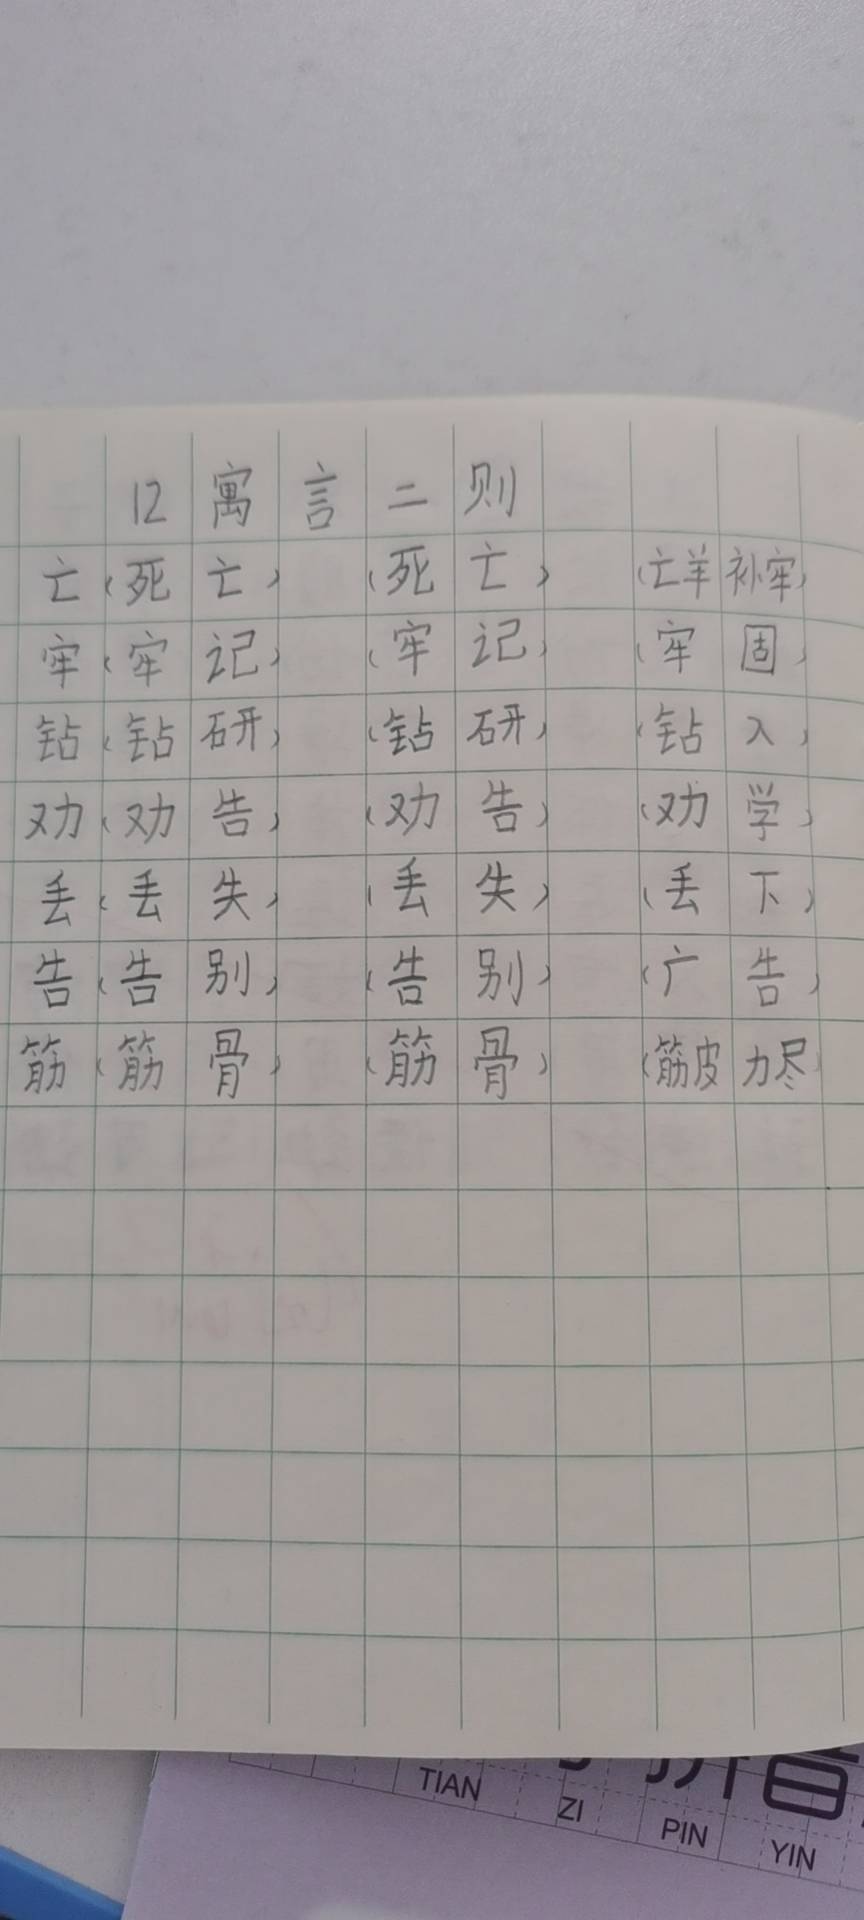 12 寓言二则
亡(死亡) (死亡) (亡羊补牢)
牢(牢记) (牢记) (牢固)
钻(钻研) (钻研) (钻入)
劝(劝告) (劝告) (劝学)
丢(丢失) (丢失) (丢下)
告(告别) (告别) (广告)
筋(筋骨) (筋骨) (筋皮力尽)
拼音
TIAN ZI PIN YIN